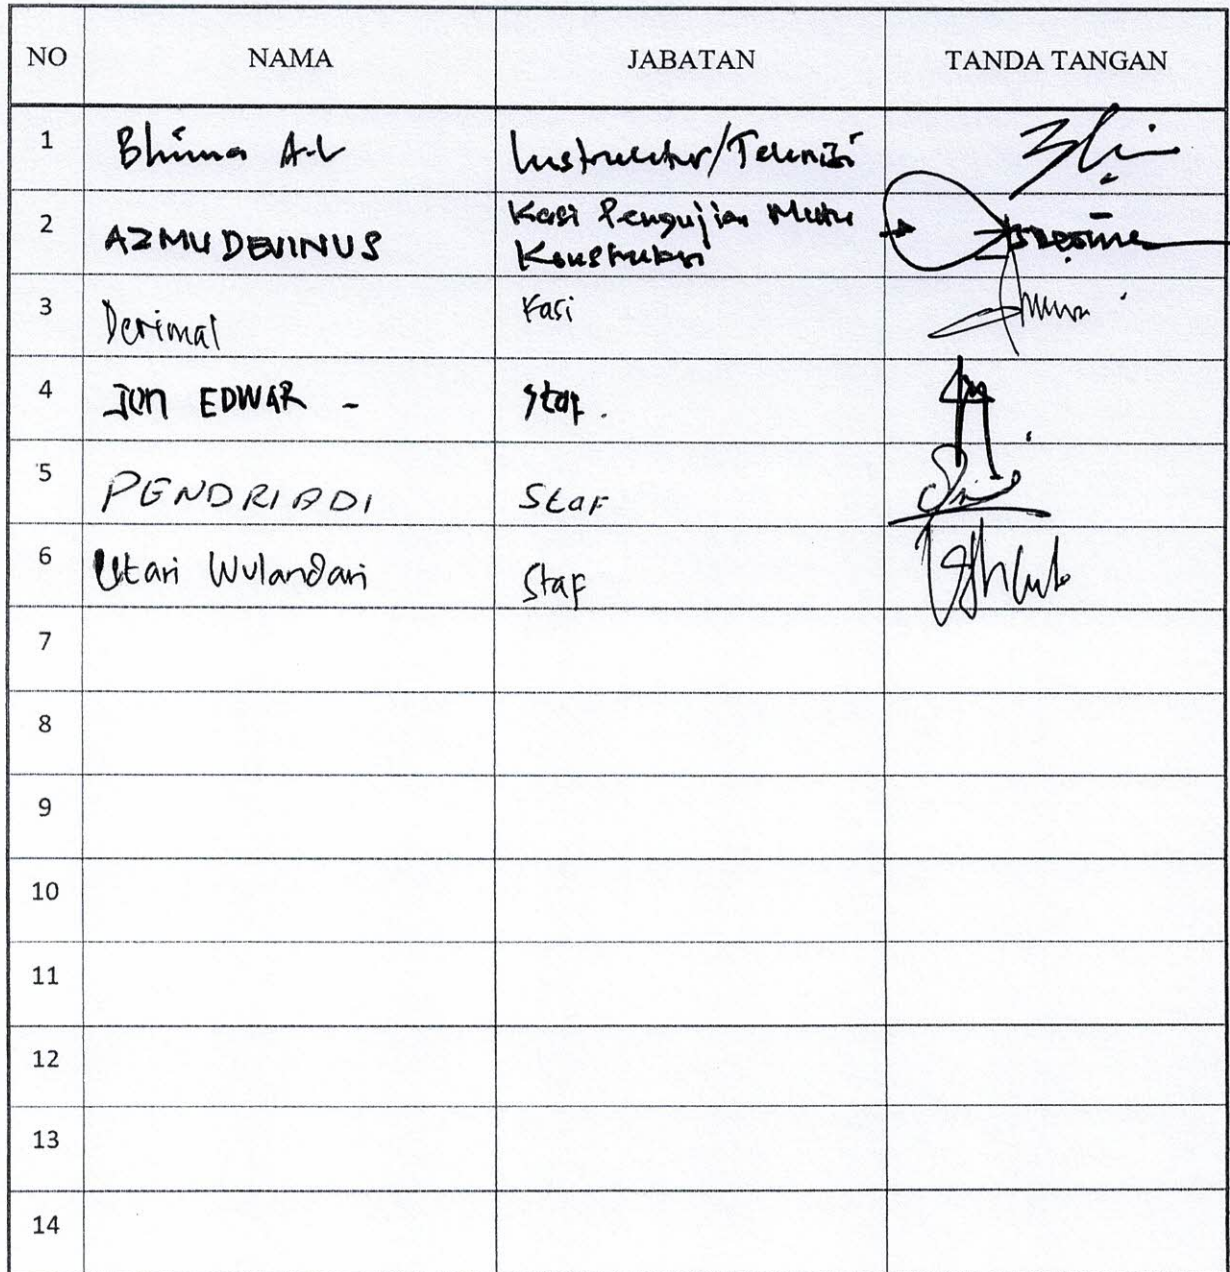 NO NAMA JABATAN TANDA TANGAN
1 Bhima A.L Instruktur/Teknisi
2 AZMU DEVINUS Kasi Pengujian Mutu
Konstruksi
3 Derimal Kasi
4 JON EDWAR - Staf.
5 PENDRIADI Staf
6 Utari Wulandari Staf
7
8
9
10
11
12
13
14